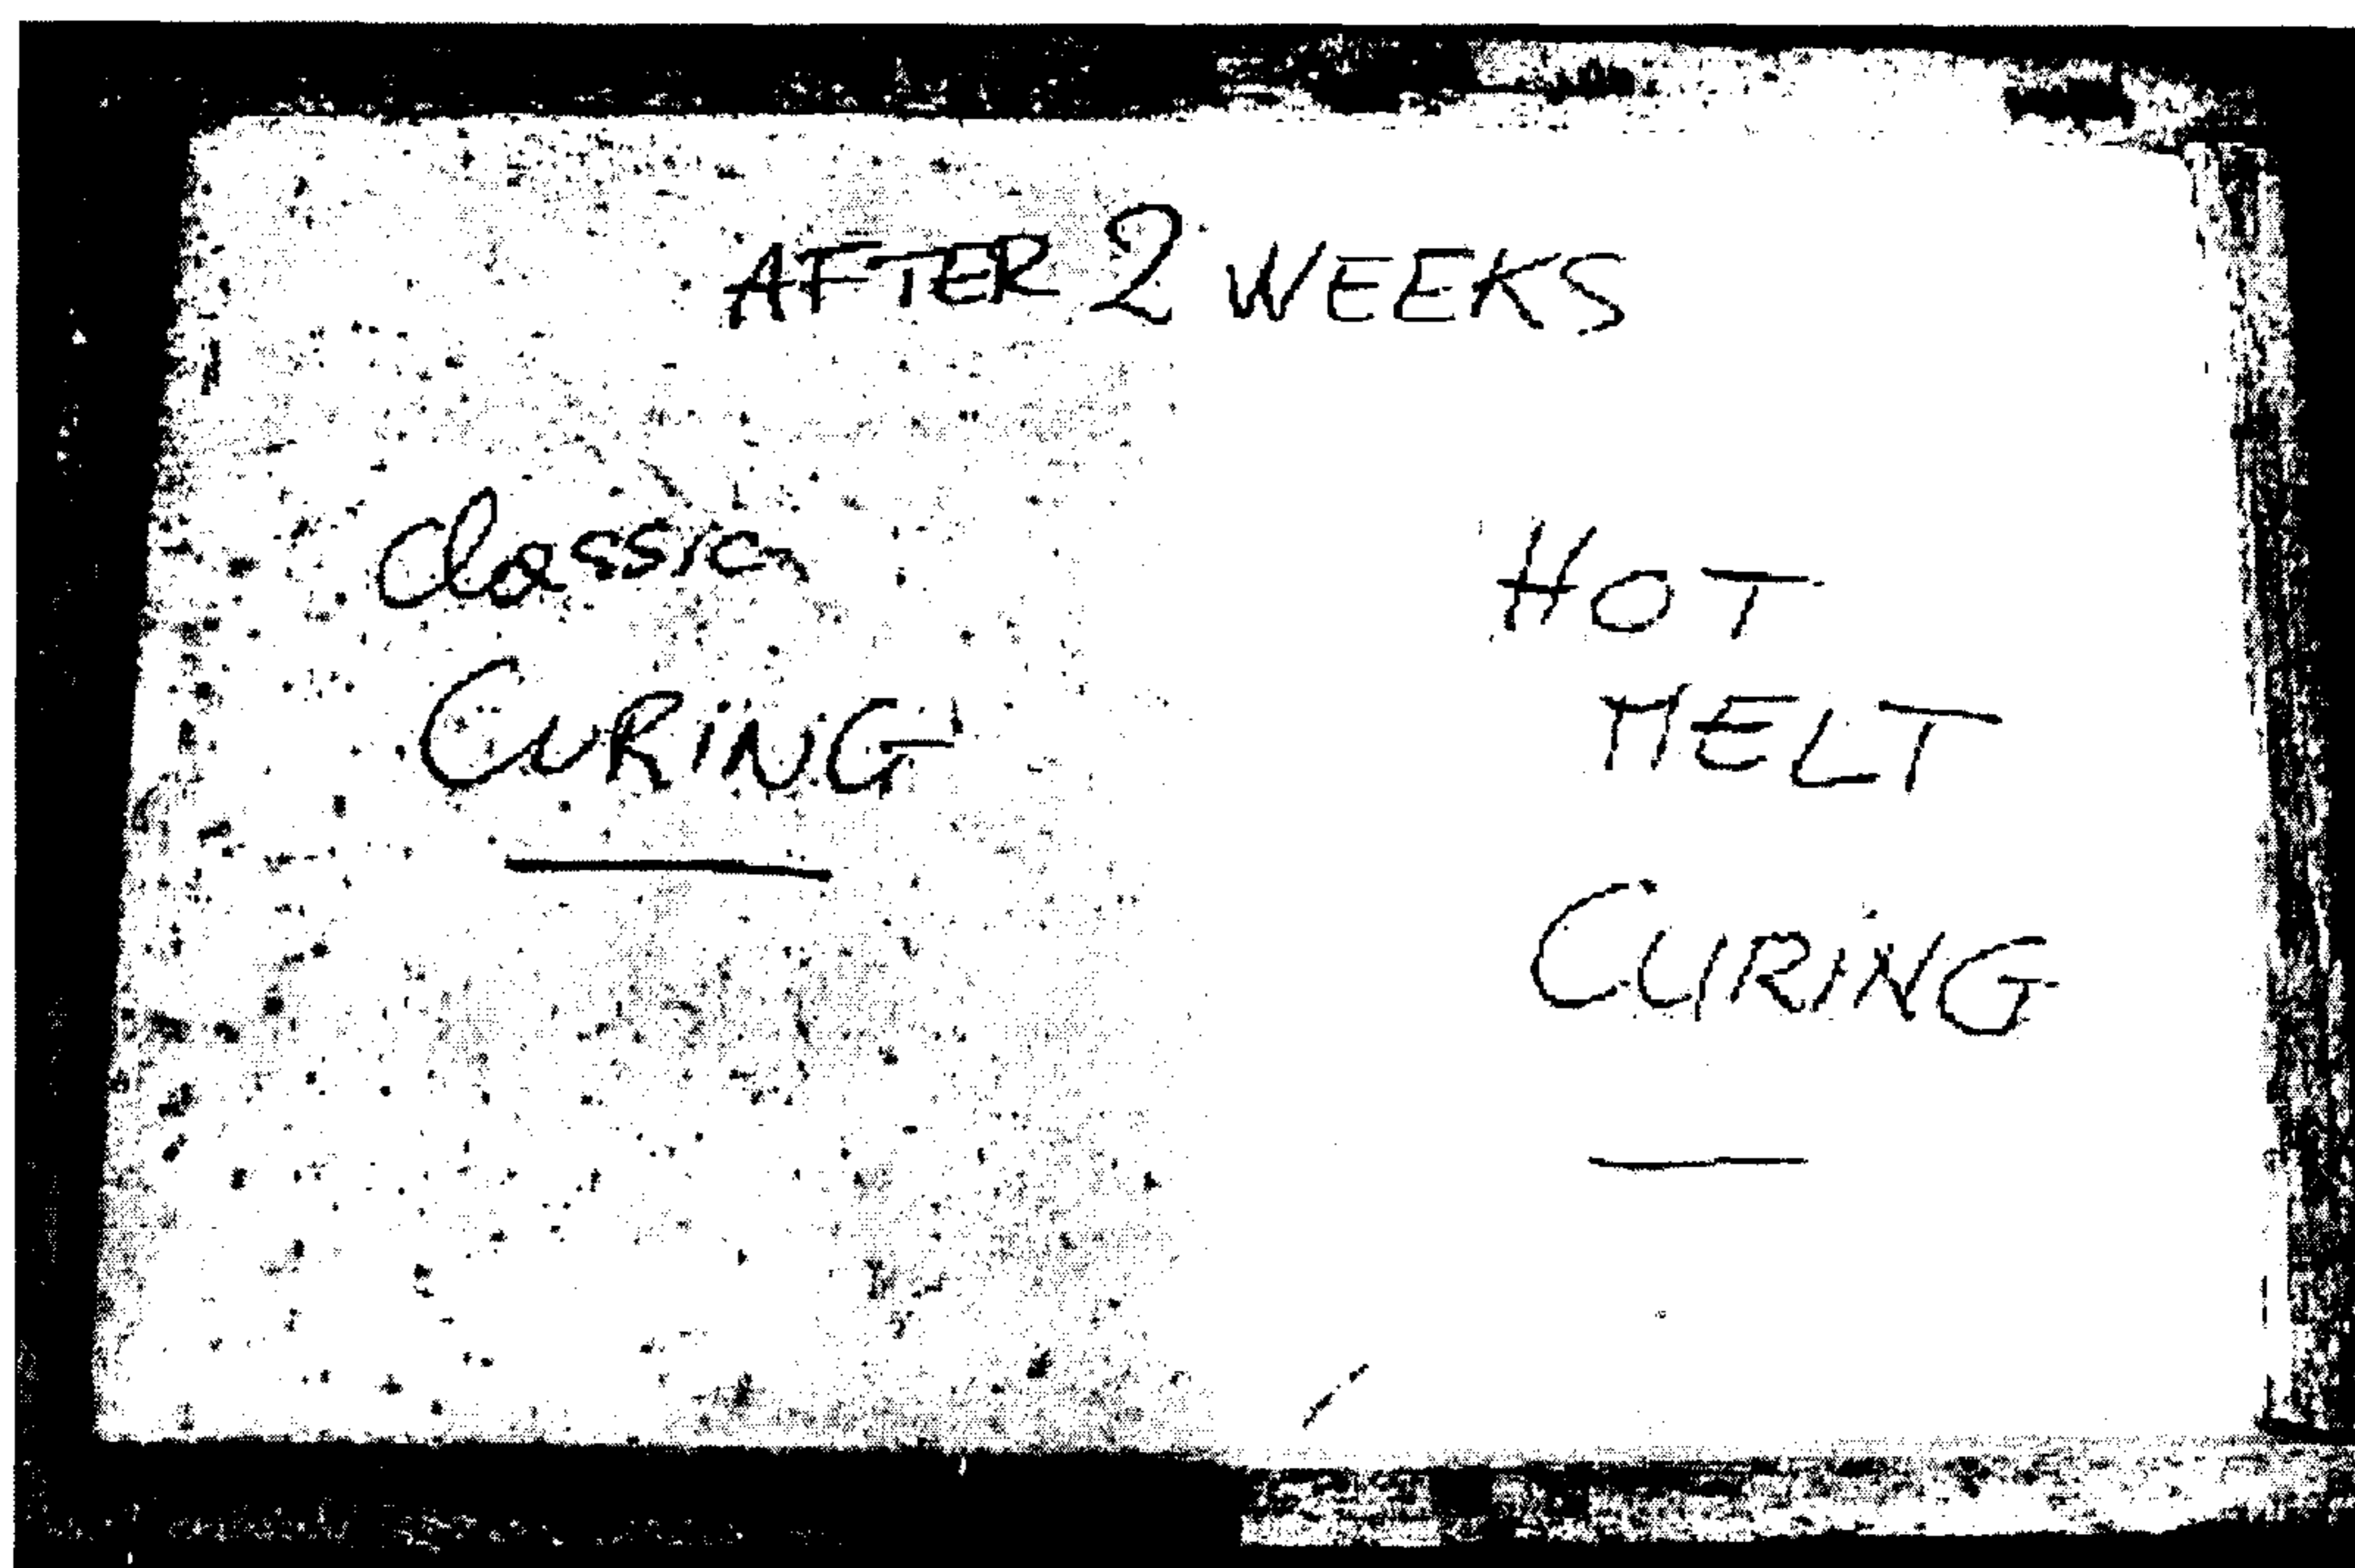 AFTER 2 WEEKS
Classic
CURING
HOT
MELT
CURING